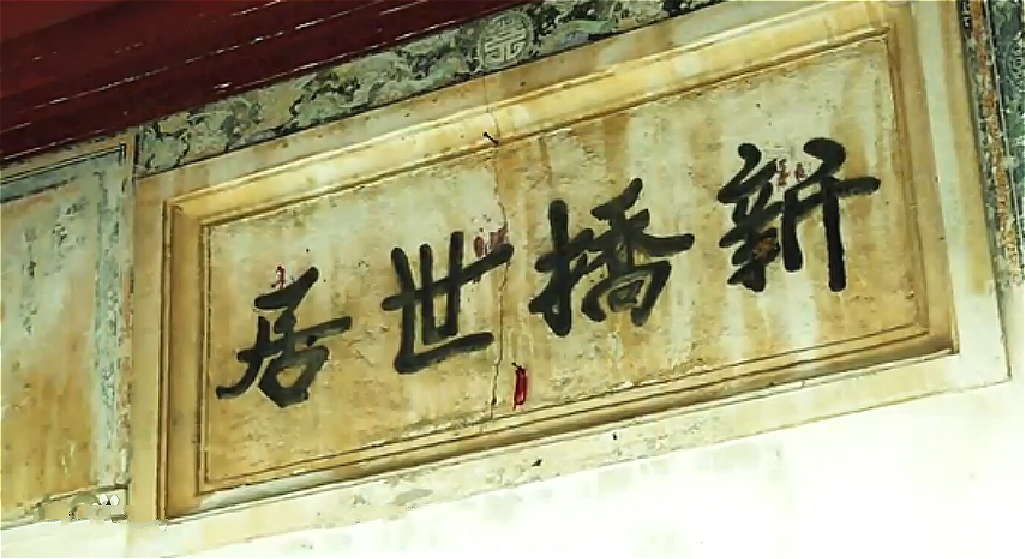 新橋世居